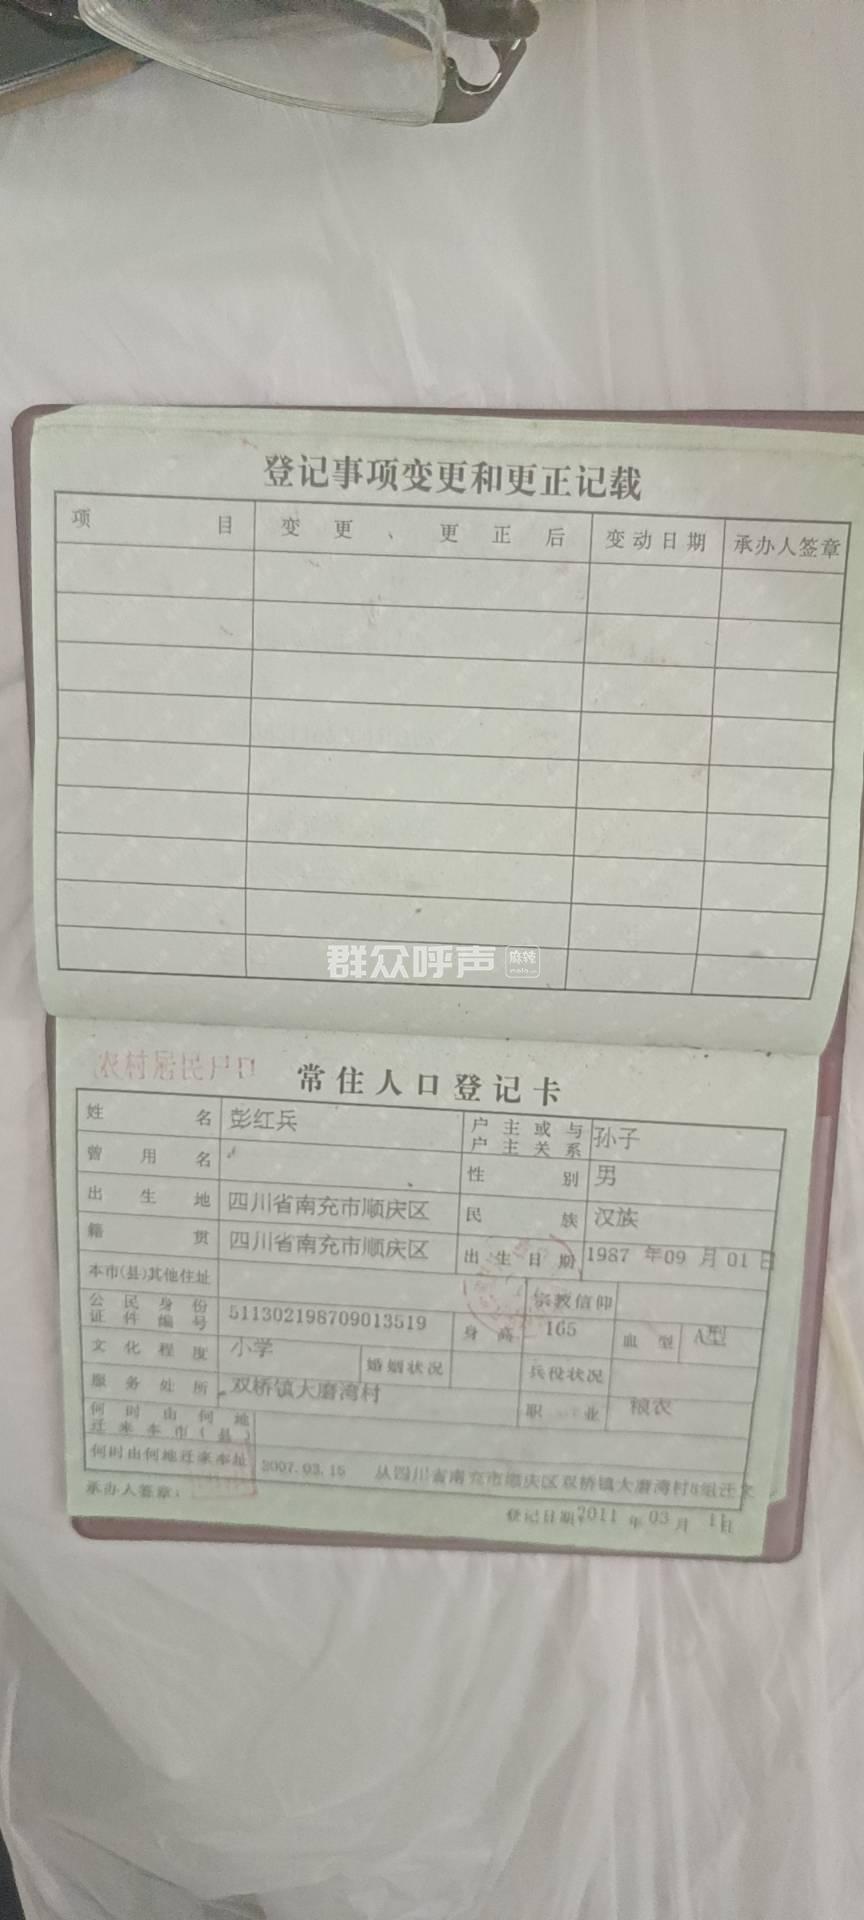 登记事项变更和更正记载
项 目 变 更 、 更 正 后 变动日期 承办人签章
群众呼声 麻辣
农村居民户口
常住人口登记卡
姓 名 彭红兵 户主或与户主关系 孙子
曾用名 性别 男
出生地 四川省南充市顺庆区 民族 汉族
籍贯 四川省南充市顺庆区 出生日期 1987 年09 月 01 日
本市(县)其他住址 宗教信仰
公民身份证件编号 511302198709013519 身高 165 血型 A型
文化程度 小学 婚姻状况 兵役状况
服务处所 双桥镇大磨湾村 职业 粮农
何时由何地迁来本市(县)
何时由何地迁来本址 2007.03.15 从四川省南充市顺庆区双桥镇大磨湾村8组迁来
承办人签章:
登记日期:2011 年 03 月 11日